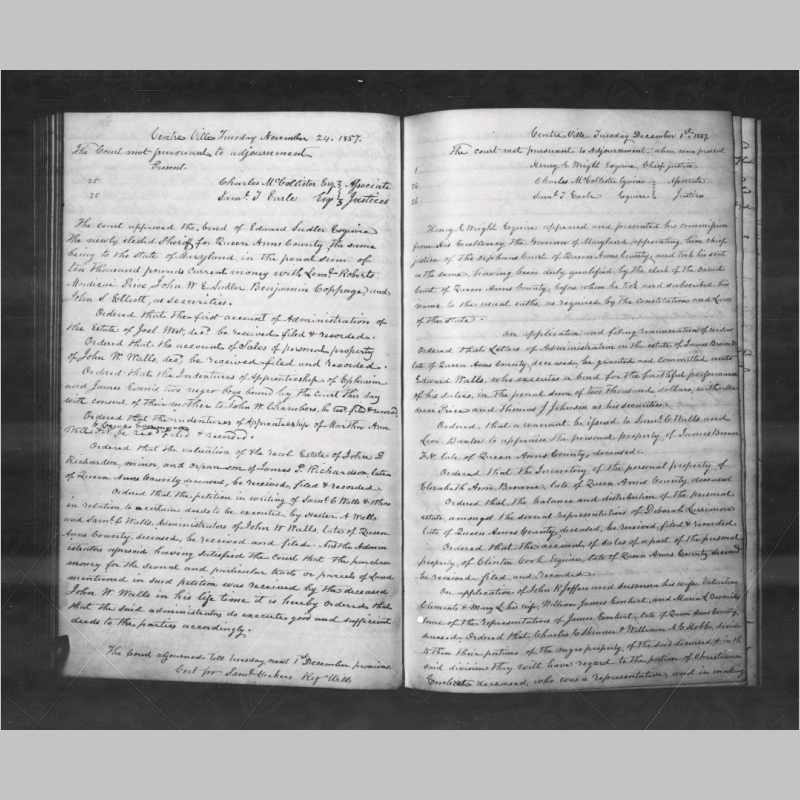 Centre Ville Tuesday November 24. 1857.
The Court met pursuant to adjournment
Present
25 Charles McCollister Esq } Associate
26 Saml. T Earle Esq } Justices
The court approved the bond of Edward Sudler Esquire
the newly elected Sheriff for Queen Anns County, the same
being to the State of Maryland in the penal sum of
ten thousand pounds current money with Leml. Roberts
Andrew Price John W E Sudler Benjamin Coppage and
John S Elliott, as securities.
Ordered that the first account of Administration of
the Estate of Joel West, decd be received filed & recorded.
Ordered that the account of Sales of personal property
of John W. Walls, decd be received filed and recorded.
Ordered that the Indentures of Apprenticeship of Ephraim
and James two negro boys bound by the Court this day
with consent of their mother to John W. Chambers, be recd filed & recorded,
Ordered that the indentures of Apprenticeship of Martha Ann
Walls to be recd filed & recorded.
Ordered that the valuation of the real Estate of John P
Richardson, minor and orphan son of James P. Richardson, late
of Queen Anns County deceased, be received, filed & recorded.
Ordered that the petition in writing of Saml. C Walls & others
in relation to certain deeds to be executed by Hester A Walls
and Saml. C Walls, Administrators of John W Walls, late of Queen
Anns County, deceased, be received and filed. And the Admin-
istrators aforesaid having satisfied the Court that the purchase
money for the several and particular tracts or parcels of Land
mentioned in said petition was received by the deceased
John W. Walls in his life time it is hereby ordered that
that the said administrators do execute good and sufficient
deeds to the parties accordingly.
The court adjourned till tuesday next 1st December proximo
Test for Reg. Wills
Centre Ville Tuesday December 1st 1857
The court met pursuant to Adjournment, when were present
1 Henry E Wright Esquire, Chief justice
26 Charles McCollister Esquire } Associate
26 Saml. T Earle Esquire } Justices
Henry E Wright Esquire appeared and presented his commission
from His Excellency the Governor of Maryland appointing him chief
justice of the orphans Court of Queen Anns County, and took his seat
as the same, having been duly qualified by the clerk of the circuit
Court of Queen Anns County, before whom he took and subscribed his
name to the usual oaths, as required by the constitution and Laws
of this State.
On application and filing renunciation of widow
Ordered that Letters of Administration on the estate of James Brown
late of Queen Anns County, deceased, be granted and committed unto
Edward Walls, who executes a bond for the faithful performance
of his duties, in the penal sum of two thousand dollars, with
Price and Thomas J Johnson as his securities.
Ordered, that a warrant be issued to Saml C Walls and
to appraise the personal property, of James Brown
late of Queen Anns County, deceased.
Ordered that the Inventory of the personal property, of
Elizabeth Ann Browne, late of Queen Anns County, deceased
Ordered that the balance and distribution of the personal
estate, amongst the several representatives of Deborah
late of Queen Anns County, deceased, be received, filed & recorded.
Ordered that the account of sales of a part of the personal
property, of Clinton Cook Esquire, late of Queen Anns County, deceased
be received filed and recorded.
On application of John R and Susanna his wife Valentine
Clements & Mary L his wife, William James and Maria L
some of the representatives of James late of Queen Anns County,
deceased, Ordered that Charles C Skinner & William A G Hobbs, divide
to them their portions of the negro property, of the said deceased & in the
said division they will have regard to the portion of Christiana
deceased, who was a representative, and in making